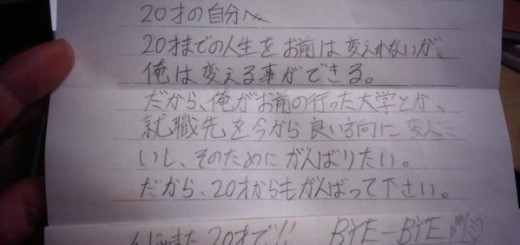 20才の自分へ
20才までの人生をお前は変えれないが、
俺は変える事ができる。
だから、俺がお前の行った大学とか、
就職先を今から良い方向に変えた
いし、そのためにがんばりたい。
だから、20才からもがんばって下さい。
また20才で!! BYE-BYE